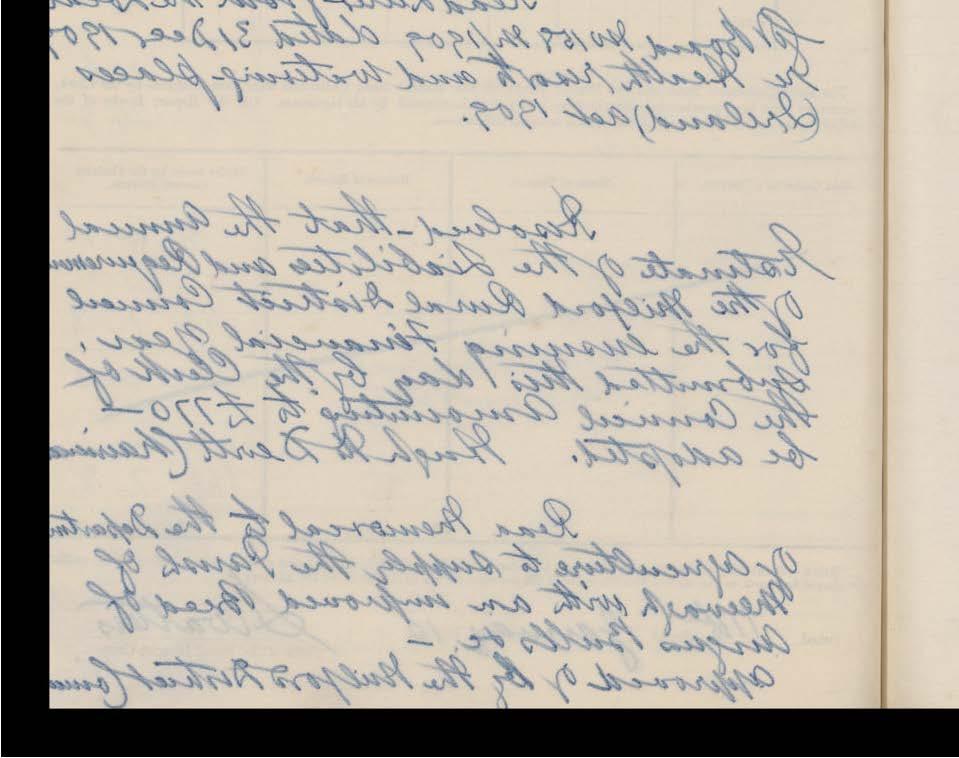 Read Letter from the Local
G. Board No 158 M/1909 dated 31 Dec 1909
re Health Resorts and Watering places
(Ireland) Act 1909.
Resolved - that the Annual
Estimate of the Liabilities and Requiremen
of the Milford Rural District Council
for the ensuing Financial Year,
submitted this day by the Clerk of
the Council amounting to £770 -
be adopted. Hugh McDevitt Chairma
Read Memorial to the Departm
of Agriculture to supply the Parish of
with an improved Breed of
Angus Bulls &c. -
approved of by the Milford District Coun